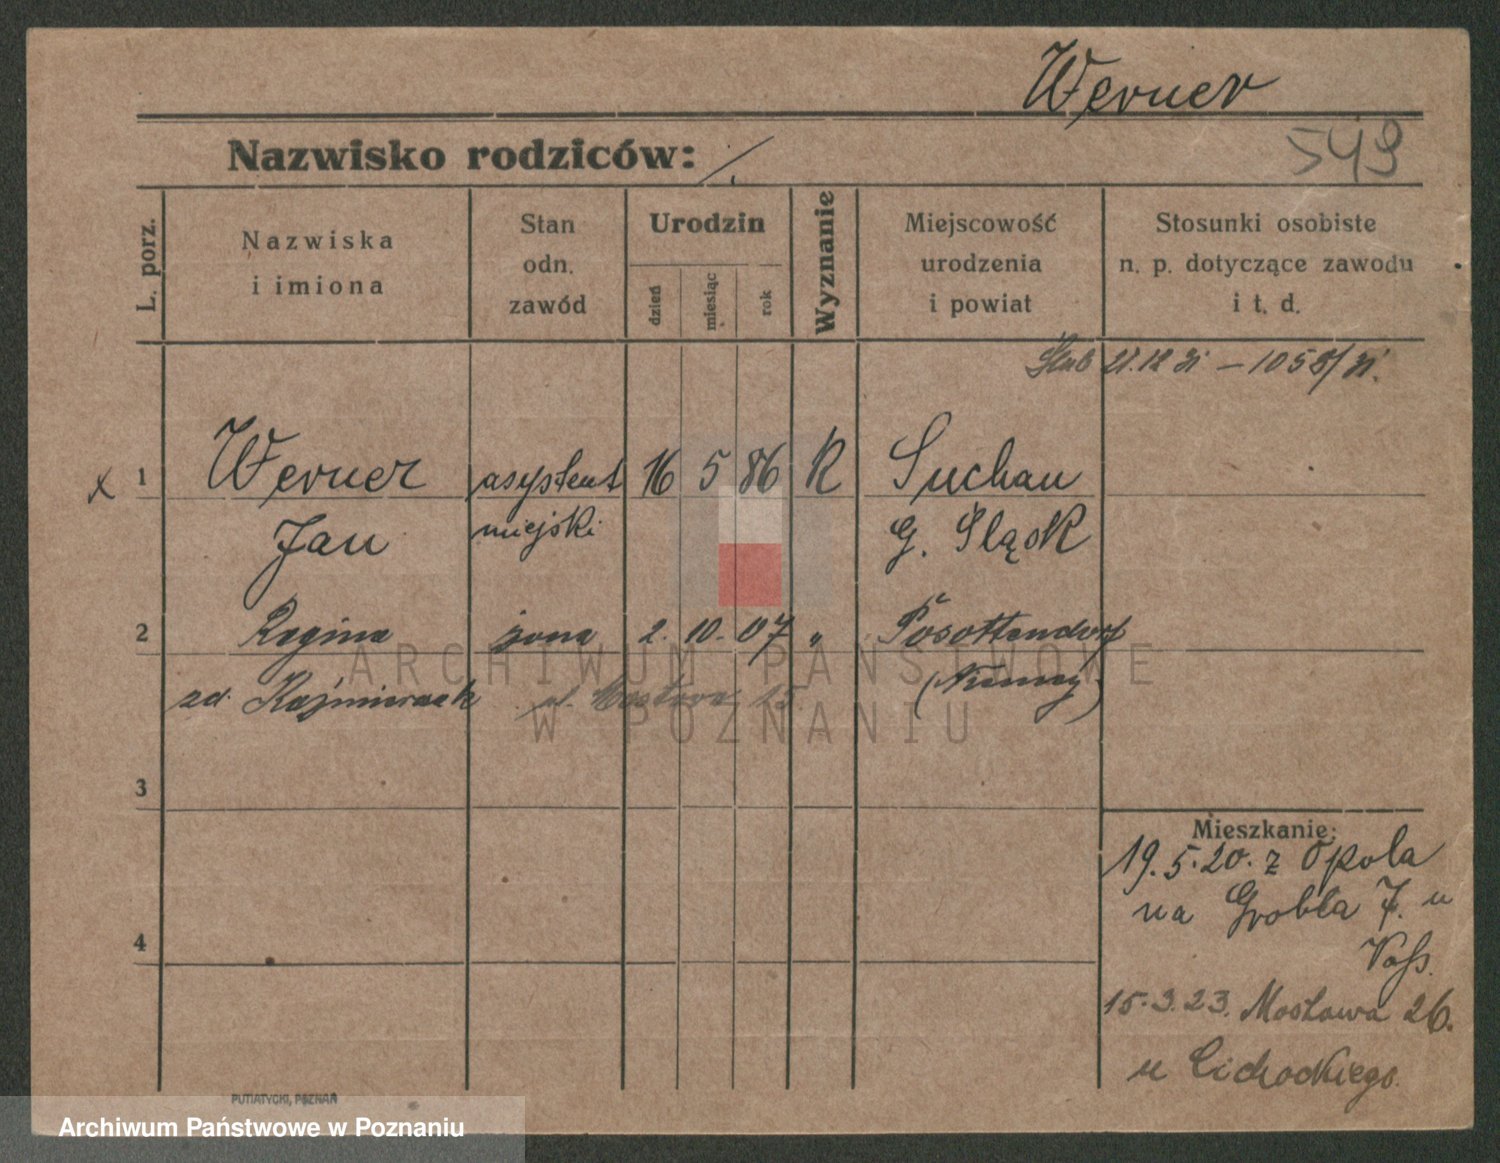 Werner
549
Nazwisko rodziców: /.
L. porz.
Nazwiska
i imiona
Stan
odn.
zawód
Urodzin
dzień
miesiąc
rok
Wyznanie
Miejscowość
urodzenia
i powiat
Stosunki osobiste
n. p. dotyczące zawodu
i t. d.
Ślub 21.12 31 – 1058/31.
x 1 Werner asystent 16 5 86 R Suchau
Jan miejski G. Śląsk
2 Regina żona 2. 10. 07 " Posottendorf
zd. Kaźmierczak pl. 15. (Niemcy)
ARCHIWUM PAŃSTWOWE
W POZNANIU
3
Mieszkanie:
19.5.20. z Opola
na Grobla 7. u
Voss.
4
15.3.23. Mostowa 26.
u Cichockiego.
PUTIATYCKI, POZNAŃ
Archiwum Państwowe w Poznaniu